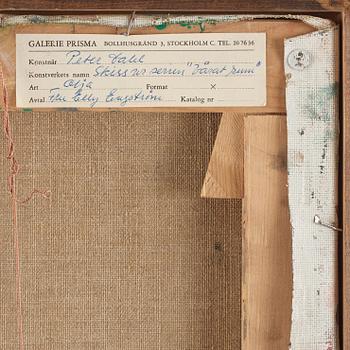 GALERIE PRISMA BOLLHUSGRÄND 3, STOCKHOLM C. TEL. 20 76 36
Konstnär Peter Dahl
Konstverkets namn Skiss ur serien "Vårat rum"
Art Olja Format ×
Avtal Fru Elly Engström Katalog nr